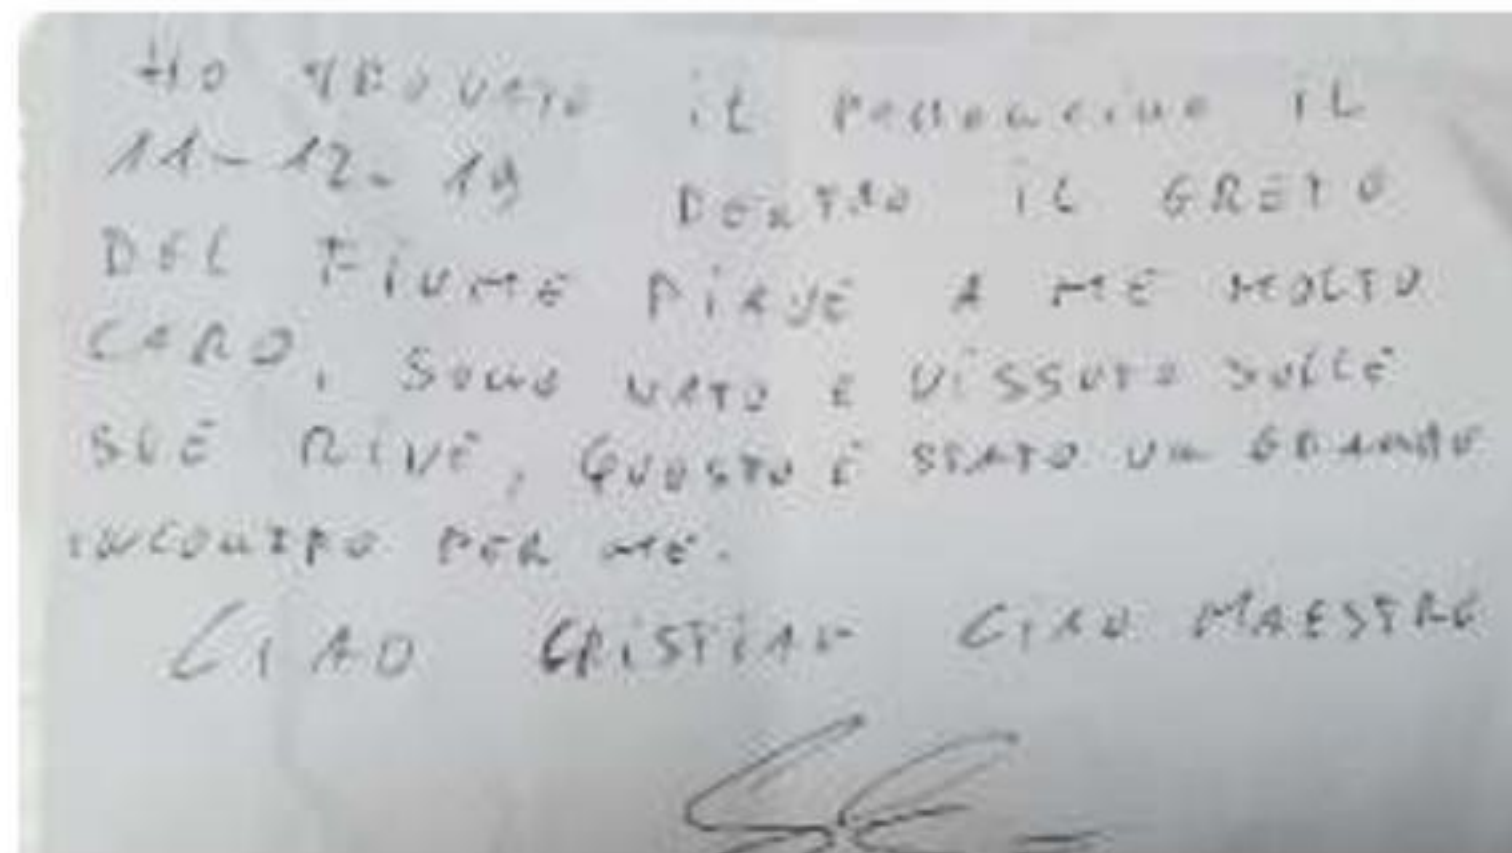 HO TROVATO IL PALLONCINO IL
11-12-19 DENTRO IL GRETO
DEL FIUME PIAVE A ME MOLTO
CARO, SONO NATO E VISSUTO SULLE
SUE RIVE, QUESTO È STATO UN GRANDE
INCONTRO PER ME.
CIAO CRISTIAN CIAO MAESTRE